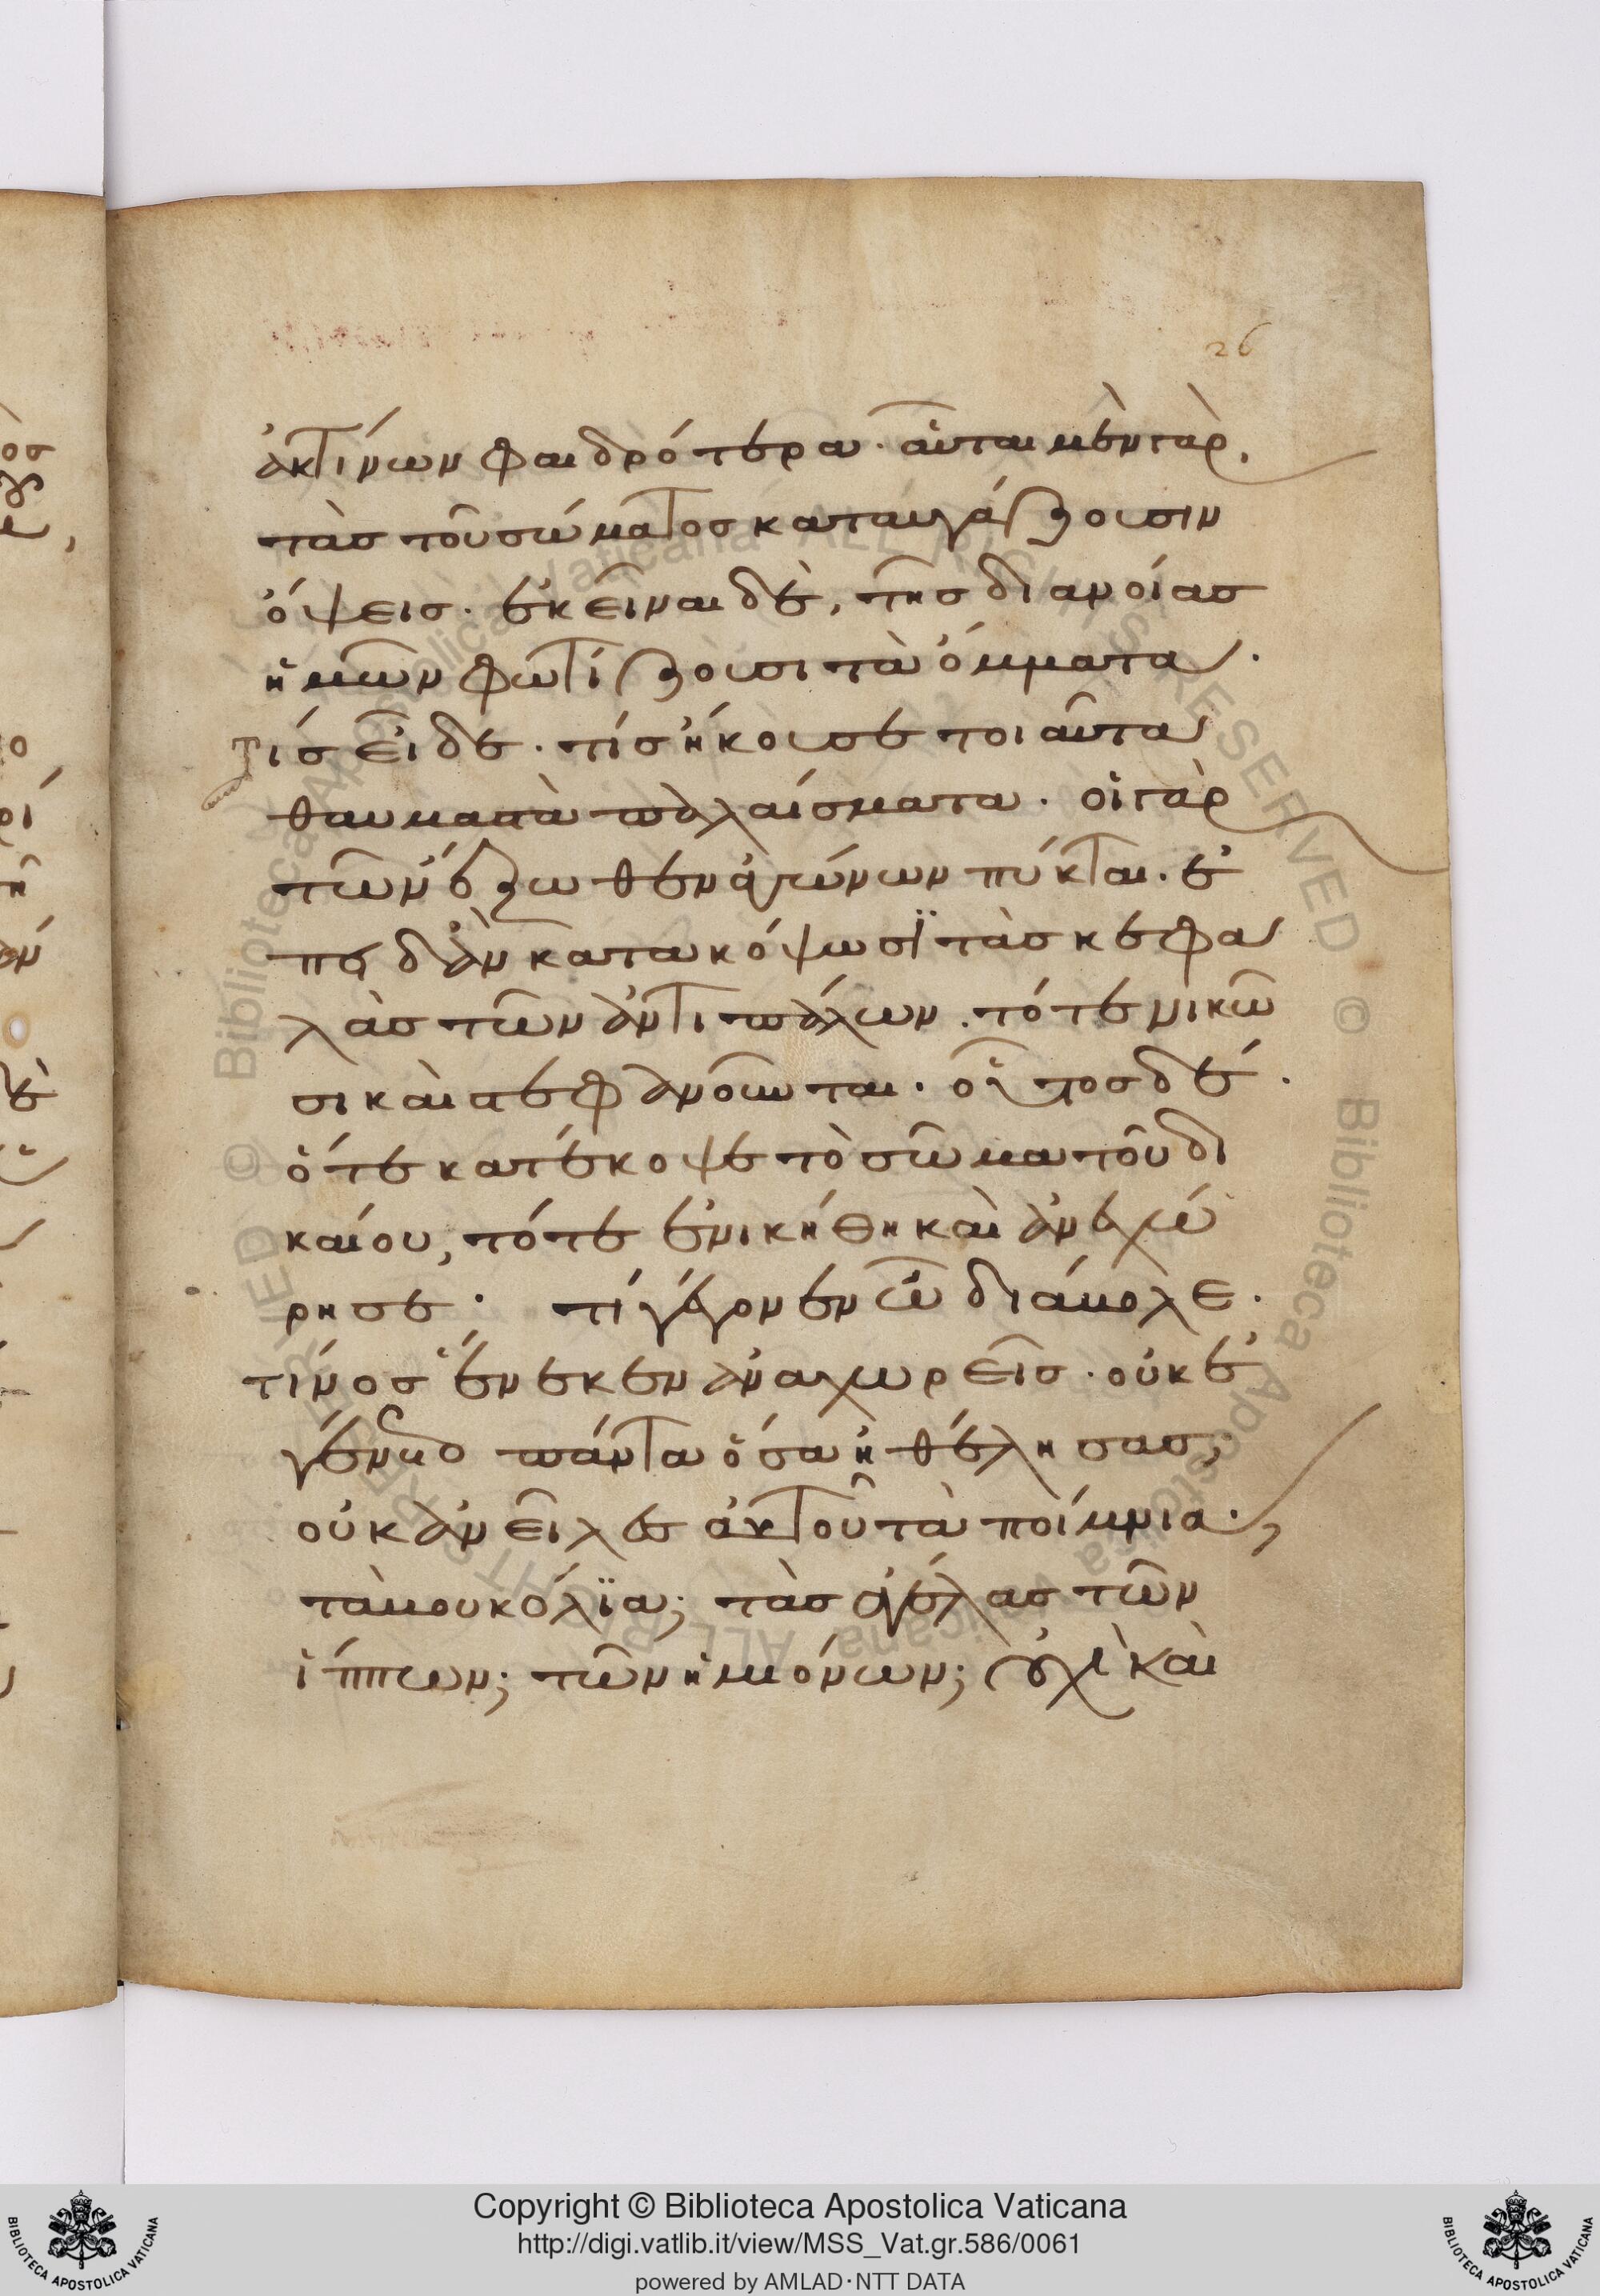 26
ἀκτίνων φαιδρότερα· αὗται μὲν γὰρ,
τὰς τοῦ σώματος καταυγάζουσιν
ὄψεις· ἐκεῖναι δὲ, τῆς διανοίας
ἡμῶν φωτίζουσι τὰ ὄμματα·
Τίς εἶδε· τίς ἤκουσε τοιαῦτα
θαυμαστὰ παλαίσματα· οἱ γὰρ
τῶν ἔξωθεν ἀγώνων πύκται· ἐ
πειδὰν κατακόψωσϊ τὰς κεφα
λὰς τῶν ἀντιπάλων· τότε νικῶ
σι καὶ στεφανοῦνται· οὗτος δέ·
ὅτε κατέκοψε τὸ σῶμα τοῦ δι
καίου, τότε ἐνικήθη καὶ ἀνεχώ
ρησε· τί γέγονεν ὦ διάβολε·
τίνος ἕνεκεν ἀναχωρεῖς· οὐκ ἐ
γένετο πάντα ὅσα ἠθέλησας;
οὐκ ἀνεῖλες αὐτοῦ τὰ ποίμνια·
τὰ βουκόλϊα; τὰς ἀγέλας τῶν
ἵππων; τῶν ἡμιόνων; οὐχὶ καὶ
Copyright © Biblioteca Apostolica Vaticana
http://digi.vatlib.it/view/MSS_Vat.gr.586/0061
powered by AMLAD·NTT DATA